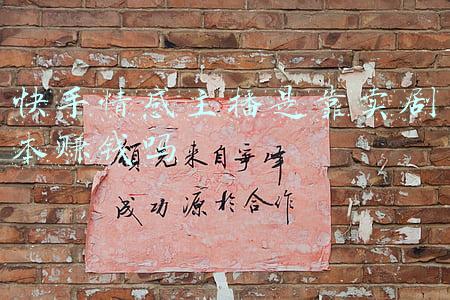 快手情感主播是靠卖剧
本赚钱吗
領先来自争峰
成功源於合作